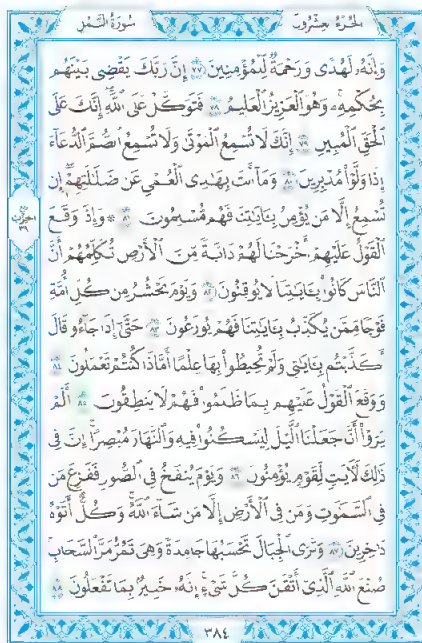 الجُزءُ العِشْرُونَ سُورَةُ النَّمْلِ
وَإِنَّهُۥ لَهُدًى وَرَحْمَةٌ لِّلْمُؤْمِنِينَ ٧٧ إِنَّ رَبَّكَ يَقْضِى بَيْنَهُم
بِحُكْمِهِۦ وَهُوَ ٱلْعَزِيزُ ٱلْعَلِيمُ ٧٨ فَتَوَكَّلْ عَلَى ٱللَّهِ إِنَّكَ عَلَى
ٱلْحَقِّ ٱلْمُبِينِ ٧٩ إِنَّكَ لَا تُسْمِعُ ٱلْمَوْتَىٰ وَلَا تُسْمِعُ ٱلصُّمَّ ٱلدُّعَآءَ
إِذَا وَلَّوْا۟ مُدْبِرِينَ ٨٠ وَمَآ أَنتَ بِهَـٰدِى ٱلْعُمْىِ عَن ضَلَـٰلَتِهِمْ إِن
تُسْمِعُ إِلَّا مَن يُؤْمِنُ بِـَٔايَـٰتِنَا فَهُم مُّسْلِمُونَ ٨١ ۞ وَإِذَا وَقَعَ
ٱلْقَوْلُ عَلَيْهِمْ أَخْرَجْنَا لَهُمْ دَآبَّةً مِّنَ ٱلْأَرْضِ تُكَلِّمُهُمْ أَنَّ
ٱلنَّاسَ كَانُوا۟ بِـَٔايَـٰتِنَا لَا يُوقِنُونَ ٨٢ وَيَوْمَ نَحْشُرُ مِن كُلِّ أُمَّةٍ
فَوْجًا مِّمَّن يُكَذِّبُ بِـَٔايَـٰتِنَا فَهُمْ يُوزَعُونَ ٨٣ حَتَّىٰٓ إِذَا جَآءُو قَالَ
أَكَذَّبْتُم بِـَٔايَـٰتِى وَلَمْ تُحِيطُوا۟ بِهَا عِلْمًا أَمَّاذَا كُنتُمْ تَعْمَلُونَ ٨٤
وَوَقَعَ ٱلْقَوْلُ عَلَيْهِم بِمَا ظَلَمُوا۟ فَهُمْ لَا يَنطِقُونَ ٨٥ أَلَمْ
يَرَوْا۟ أَنَّا جَعَلْنَا ٱلَّيْلَ لِيَسْكُنُوا۟ فِيهِ وَٱلنَّهَارَ مُبْصِرًا إِنَّ فِى
ذَٰلِكَ لَـَٔايَـٰتٍ لِّقَوْمٍ يُؤْمِنُونَ ٨٦ وَيَوْمَ يُنفَخُ فِى ٱلصُّورِ فَفَزِعَ مَن
فِى ٱلسَّمَـٰوَٰتِ وَمَن فِى ٱلْأَرْضِ إِلَّا مَن شَآءَ ٱللَّهُ وَكُلٌّ أَتَوْهُ
دَٰخِرِينَ ٨٧ وَتَرَى ٱلْجِبَالَ تَحْسَبُهَا جَامِدَةً وَهِىَ تَمُرُّ مَرَّ ٱلسَّحَابِ
صُنْعَ ٱللَّهِ ٱلَّذِىٓ أَتْقَنَ كُلَّ شَىْءٍ إِنَّهُۥ خَبِيرٌۢ بِمَا تَفْعَلُونَ ٨٨
٣٨٤